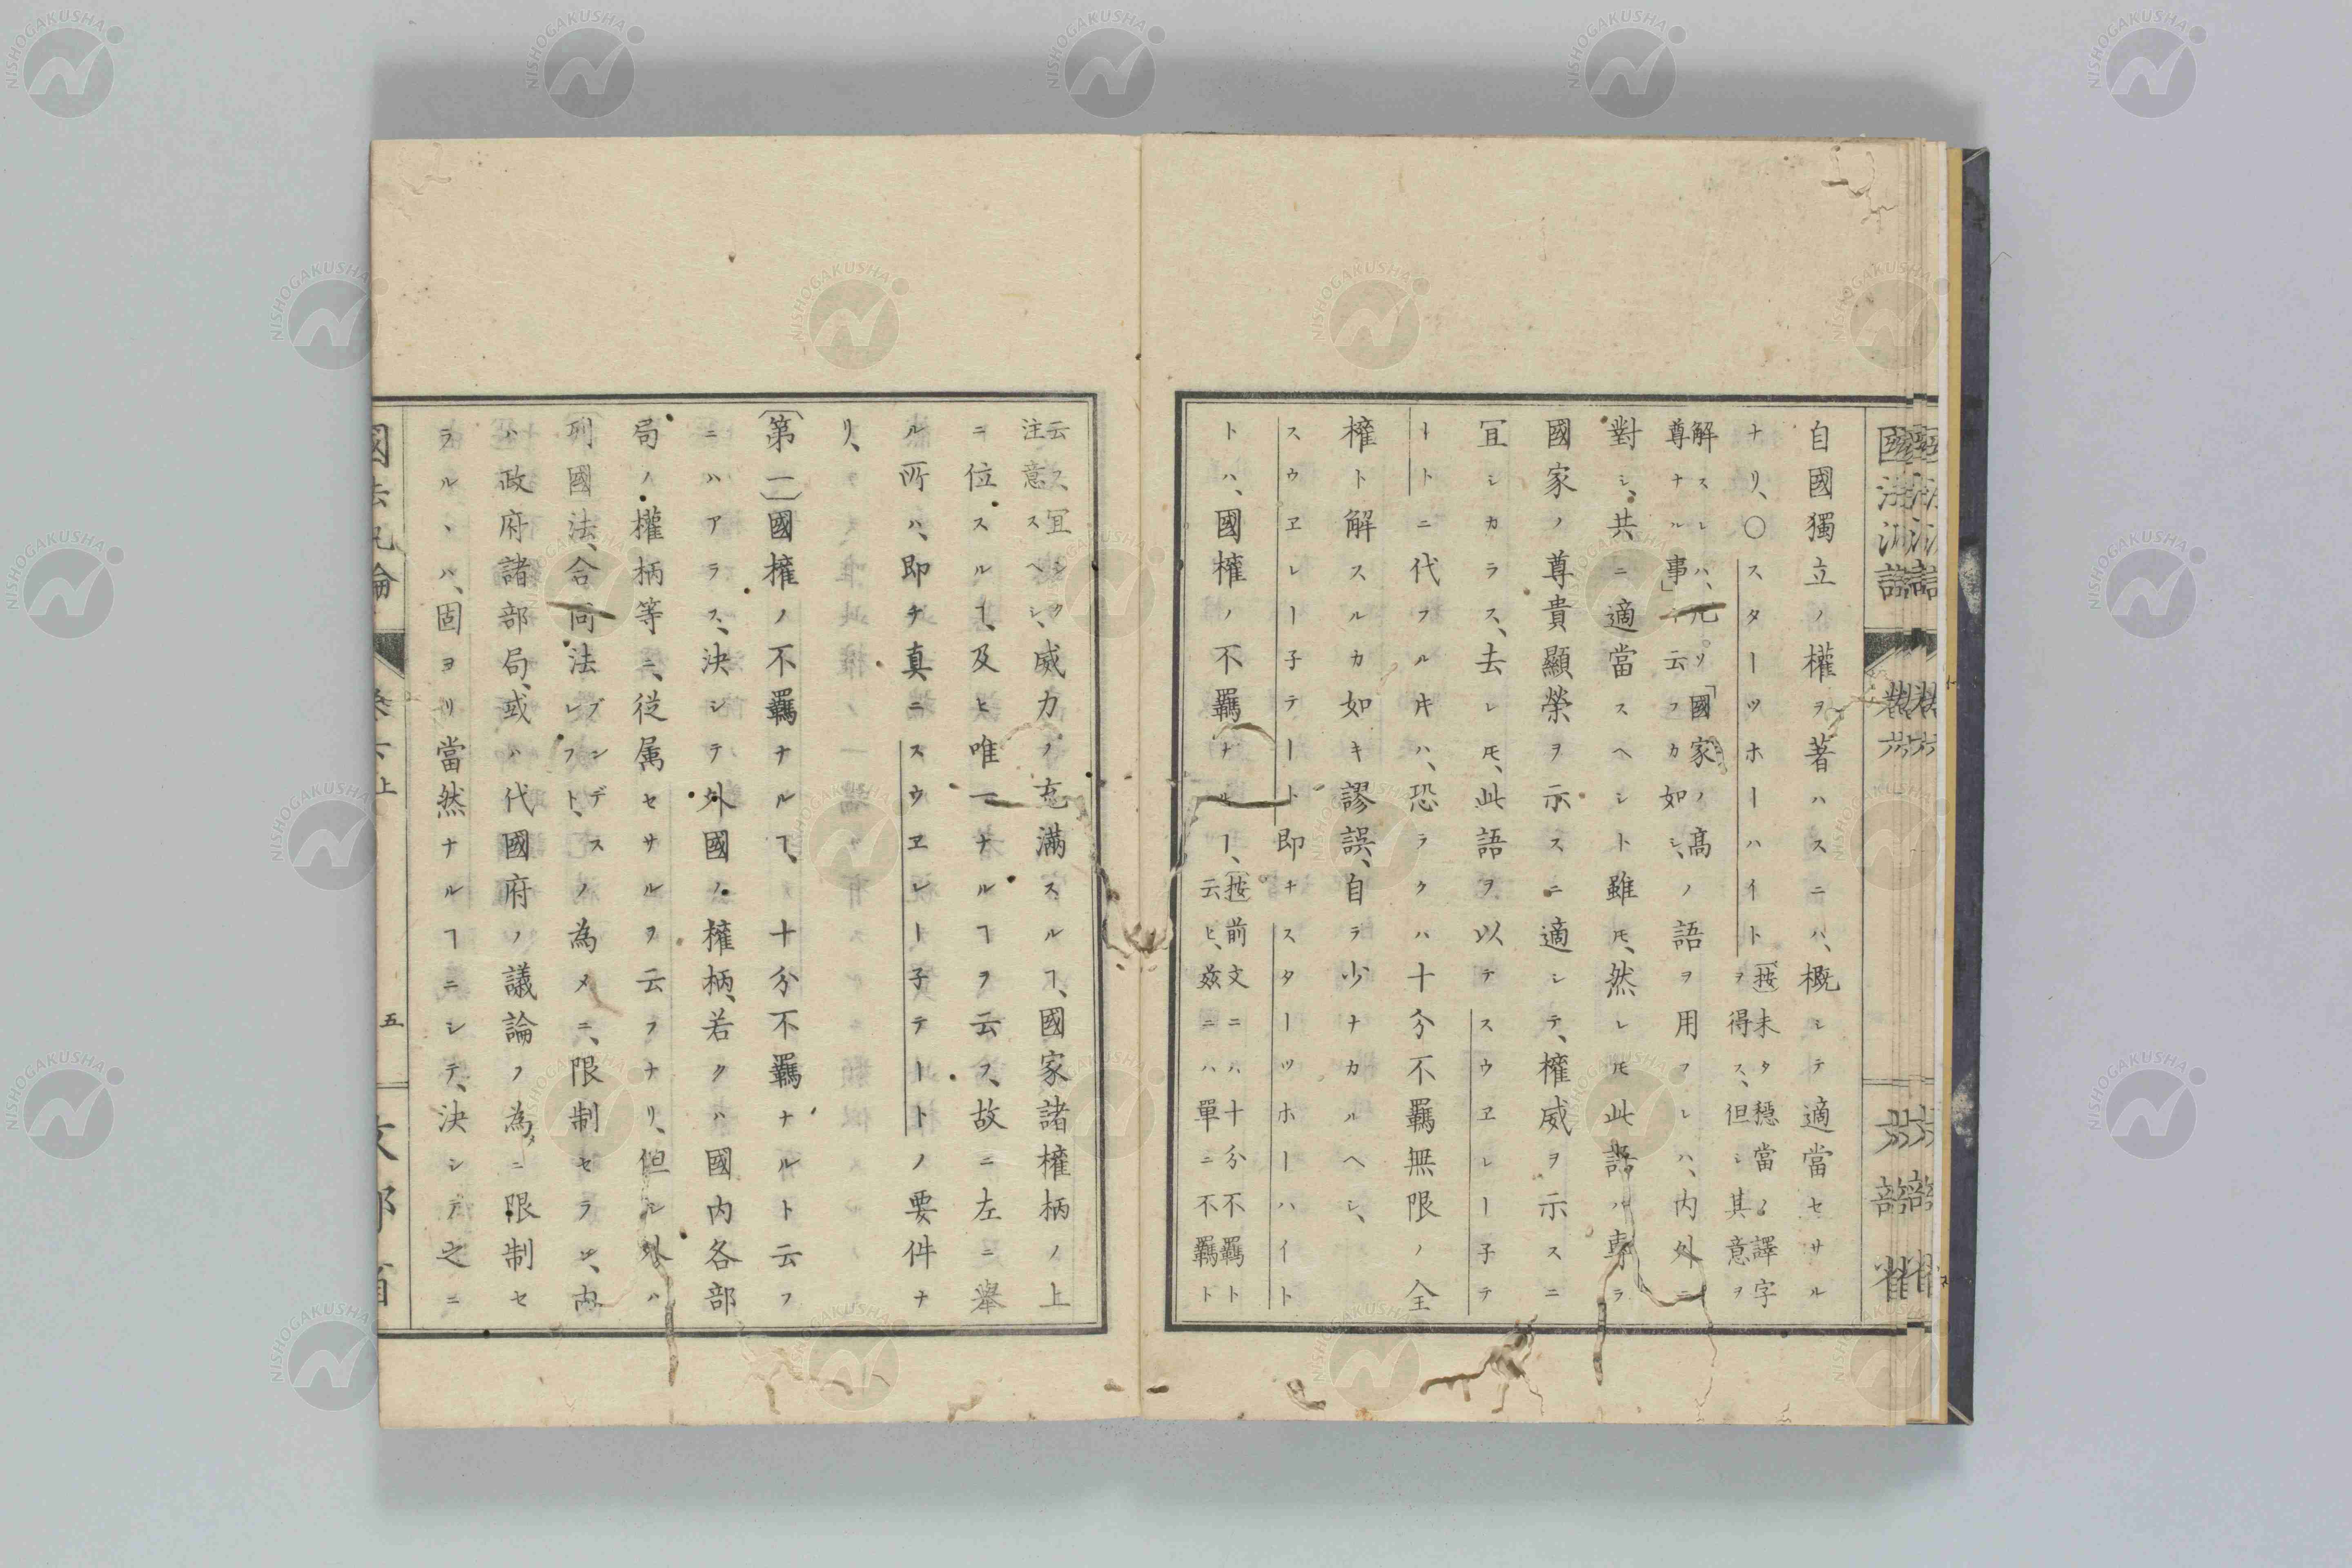 自國獨立ノ權ヲ著ハスニハ、概シテ適當セサル
ナリ、〇スターツホーハイト〔按〕未タ穩當ノ譯字
ヲ得ス、但シ其意ヲ
解スレハ、元ヨリ「國家ノ髙
尊ナル事」ト云フカ如シ、ノ語ヲ用フレハ、内外ニ
對シ、共ニ適當スヘシト雖モ、然レモ此語ハ專ラ
國家ノ尊貴顯榮ヲ示スニ適シテ、權威ヲ示スニ
冝シカラス、去レモ、此語ヲ以テスウヱレー子テ
ートニ代フル片ハ、恐ラクハ十分不羈無限ノ全
權ト解スルカ如キ謬誤、自ラ少ナカルヘシ、
スウヱレー子テート即チスターツホーハイト
トハ、國權ノ不羈ナルヿ、〔按〕前文ニハ十分不羈ト
云ヒ、玆ニハ單ニ不羈ト
云ス冝シク
注意スヘシ、威力ノ充滿スルヿ、國家諸權柄ノ上
ニ位スルヿ、及ヒ唯一ナルヿヲ云フ、故ニ左ニ舉
ル所ハ、即チ真ニスウヱレート子テートノ要件ナ
リ、
〔第一〕國權ノ不羈ナルヿ、十分不羈ナルト云フ
ニハアラス、決シテ外國ノ權柄、若クハ國内各部
局ノ權柄等ニ、從属セサルヲ云フナリ、但シ外ハ
列國法、合同法ブンデス
レフト、ノ為メニ、限制セラレ、内
ハ政府諸部局、或ハ代國府ノ議論ノ為メニ限制セ
ラルヽハ、固ヨリ當然ナルヿニシテ、決シテ之ニ
五